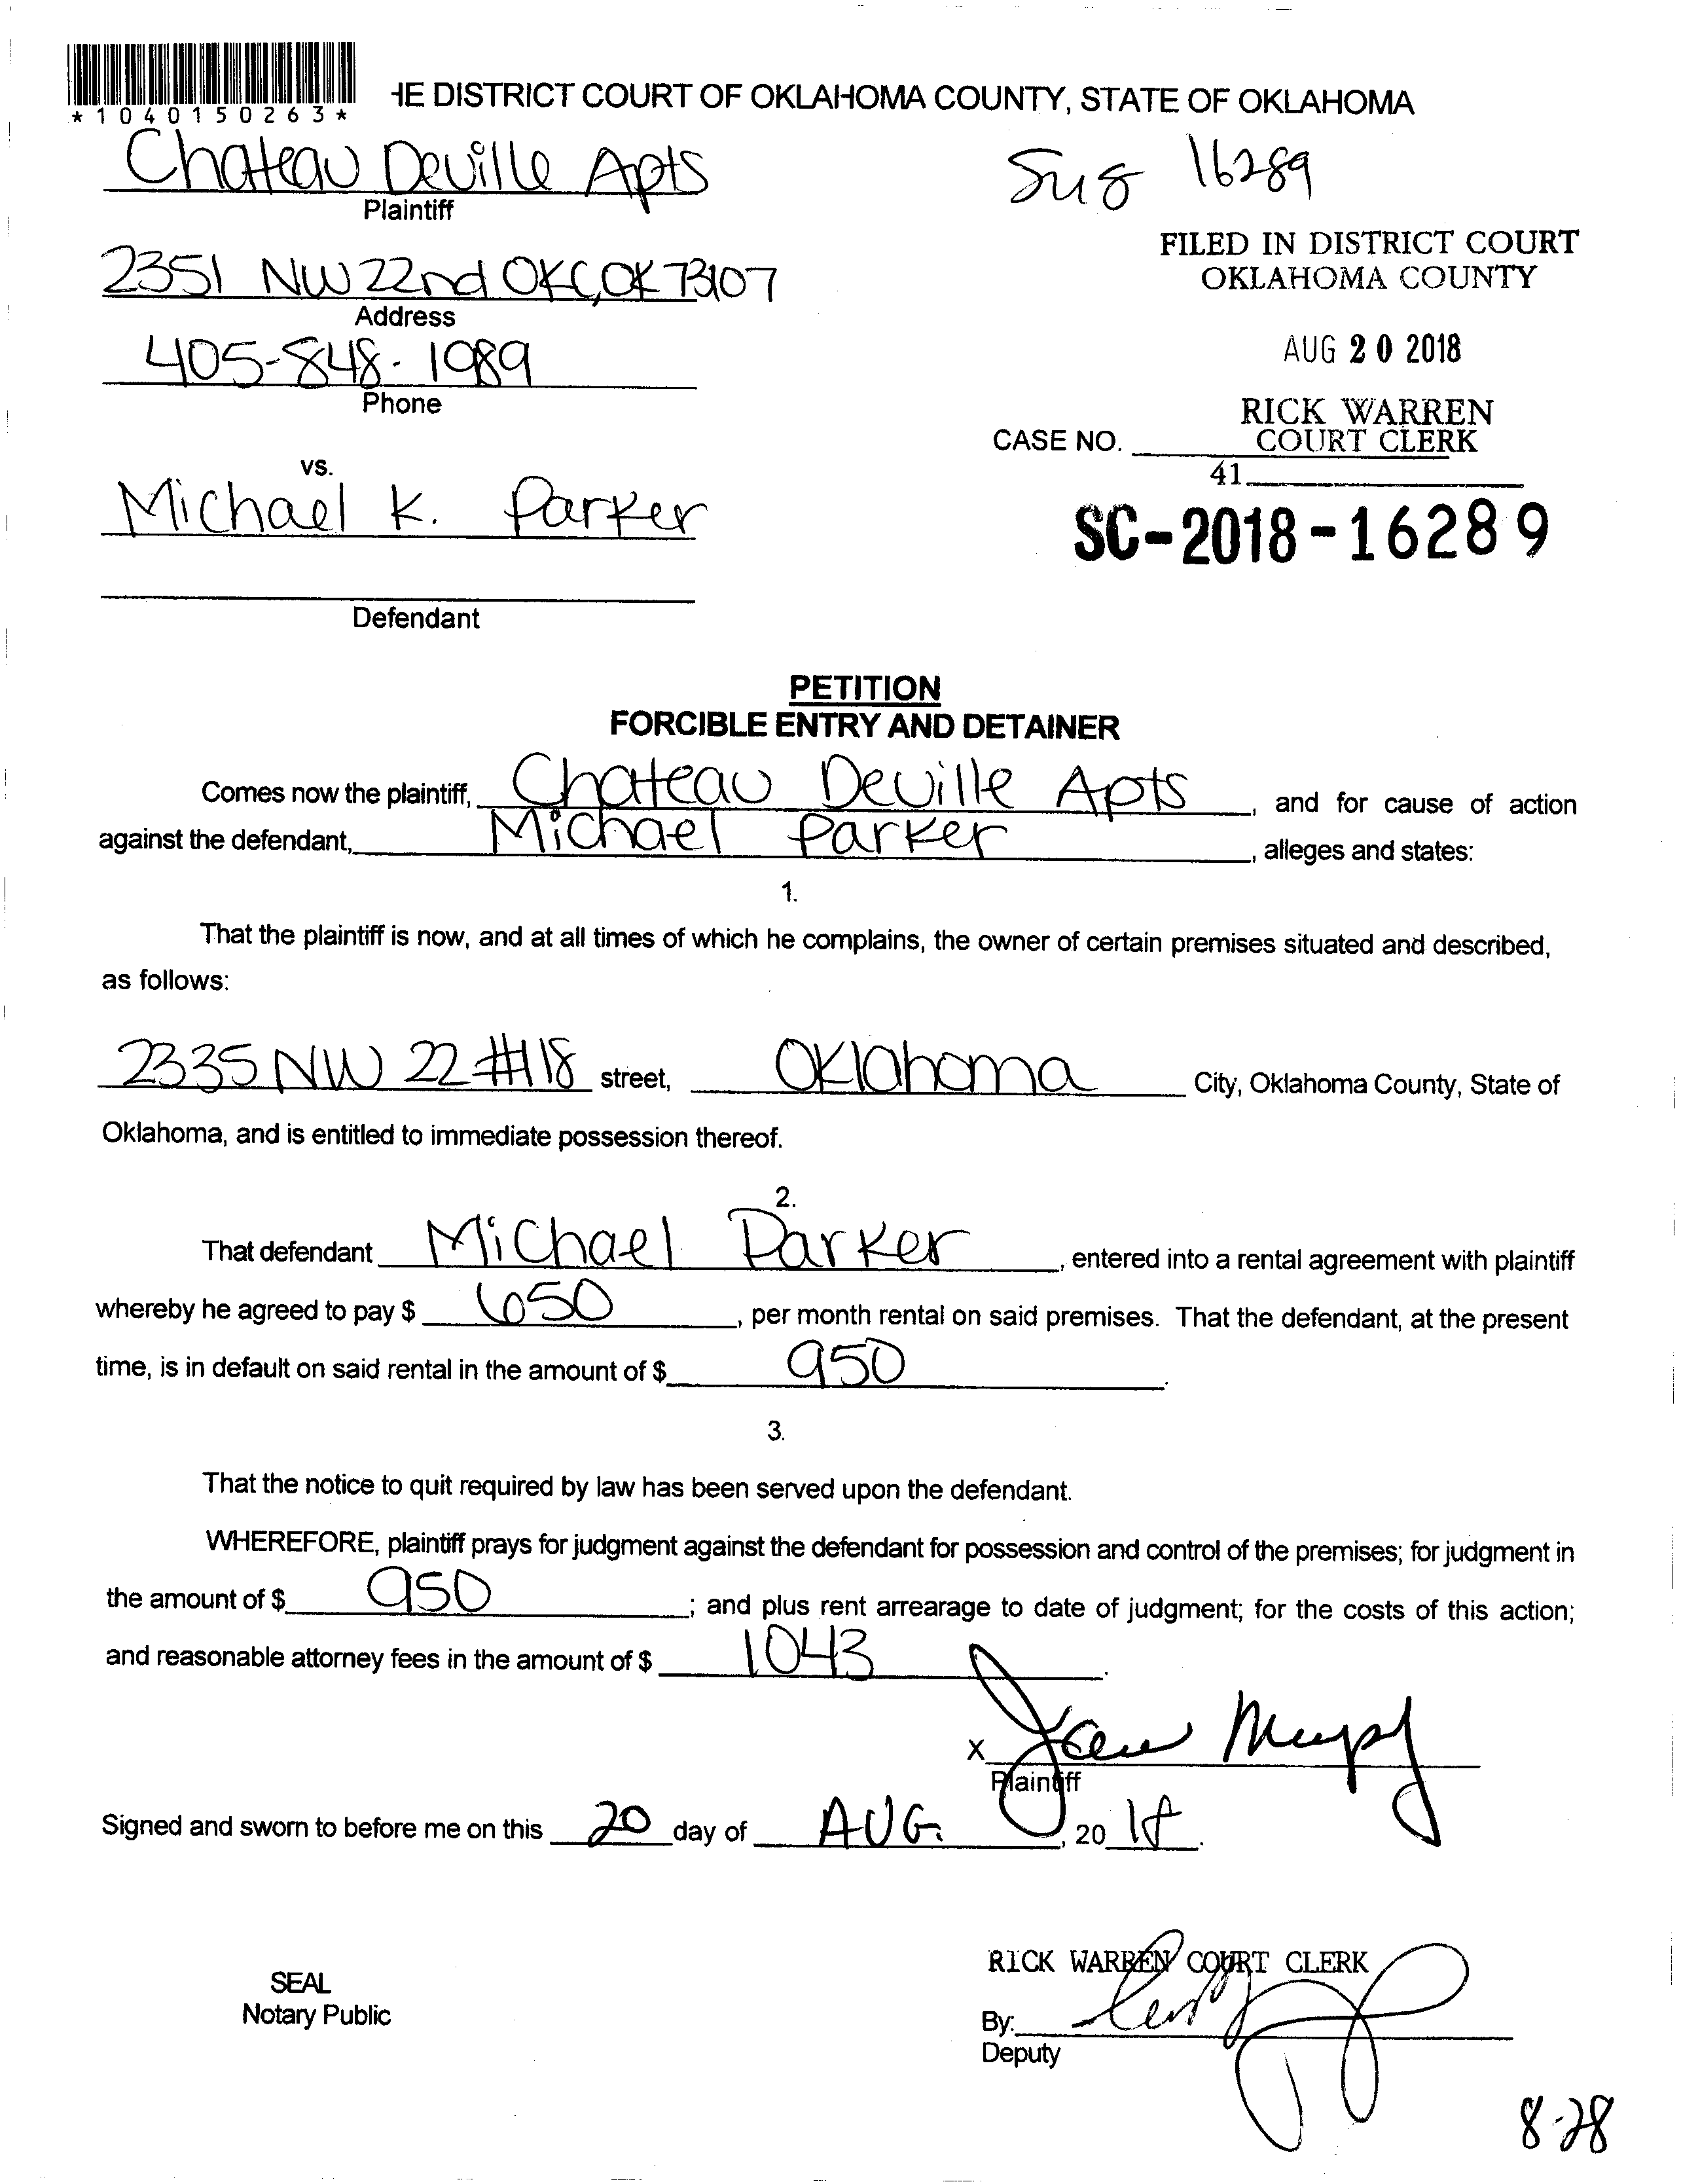 *1040150263*
HE DISTRICT COURT OF OKLAHOMA COUNTY, STATE OF OKLAHOMA
Chateau Deville Apts
Plaintiff
16289
2351 NW 22nd OKC, OK 73107
Address
FILED IN DISTRICT COURT
OKLAHOMA COUNTY
405-848-1989
Phone
AUG 20 2018
RICK WARREN
CASE NO. COURT CLERK
41
vs.
Michael K. Parker
SC-2018-16289
Defendant
PETITION
FORCIBLE ENTRY AND DETAINER
Comes now the plaintiff, Chateau Deville Apts, and for cause of action
against the defendant, Michael Parker, alleges and states:
1.
That the plaintiff is now, and at all times of which he complains, the owner of certain premises situated and described,
as follows:
2335 NW 22 #118 street, Oklahoma City, Oklahoma County, State of
Oklahoma, and is entitled to immediate possession thereof.
2.
That defendant Michael Parker, entered into a rental agreement with plaintiff
whereby he agreed to pay $ 650, per month rental on said premises. That the defendant, at the present
time, is in default on said rental in the amount of $ 950.
3.
That the notice to quit required by law has been served upon the defendant.
WHEREFORE, plaintiff prays for judgment against the defendant for possession and control of the premises; for judgment in
the amount of $ 950; and plus rent arrearage to date of judgment; for the costs of this action;
and reasonable attorney fees in the amount of $ 1043.
X
Plaintiff
Signed and sworn to before me on this 20 day of AUG., 20 18.
RICK WARREN COURT CLERK
SEAL
Notary Public
By:
Deputy
8-28